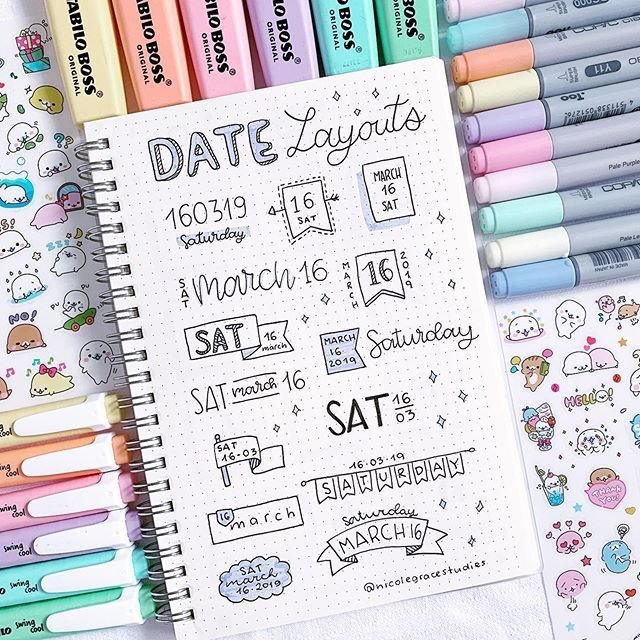 STABILO BOSS
ORIGINAL
STABILO BOSS
ORIGINAL
STABILO BOSS
ORIGINAL
STABILO BOSS
ORIGINAL
DATE Layouts
160319
Saturday
16
SAT
MARCH
16
SAT
SAT march 16
MARCH 16 2019
SAT 16
march
MARCH
16
2019
Saturday
SAT march 16
SAT 16
03
SAT
16-03
16.03.19
SATURDAY
16 march
saturday
MARCH 16
SAT
march
16.2019
@nicolegracestudies
Y11
Too
MADE IN JAPAN
Pale Purple
NO!
HELLO!
THANK
YOU!
swing
cool
swing
cool
swing
cool
swing
cool
swing
cool
swing
cool